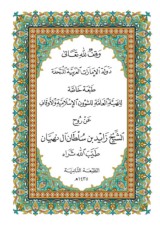 وقف لله تعالى
دولة الإمارات العربية المتحدة
طبعة خاصة
للهيئة العامة للشؤون الإسلامية والأوقاف
عن روح
الشيخ زايد بن سلطان آل نهيان
طيب الله ثراه
الطبعة الثانية